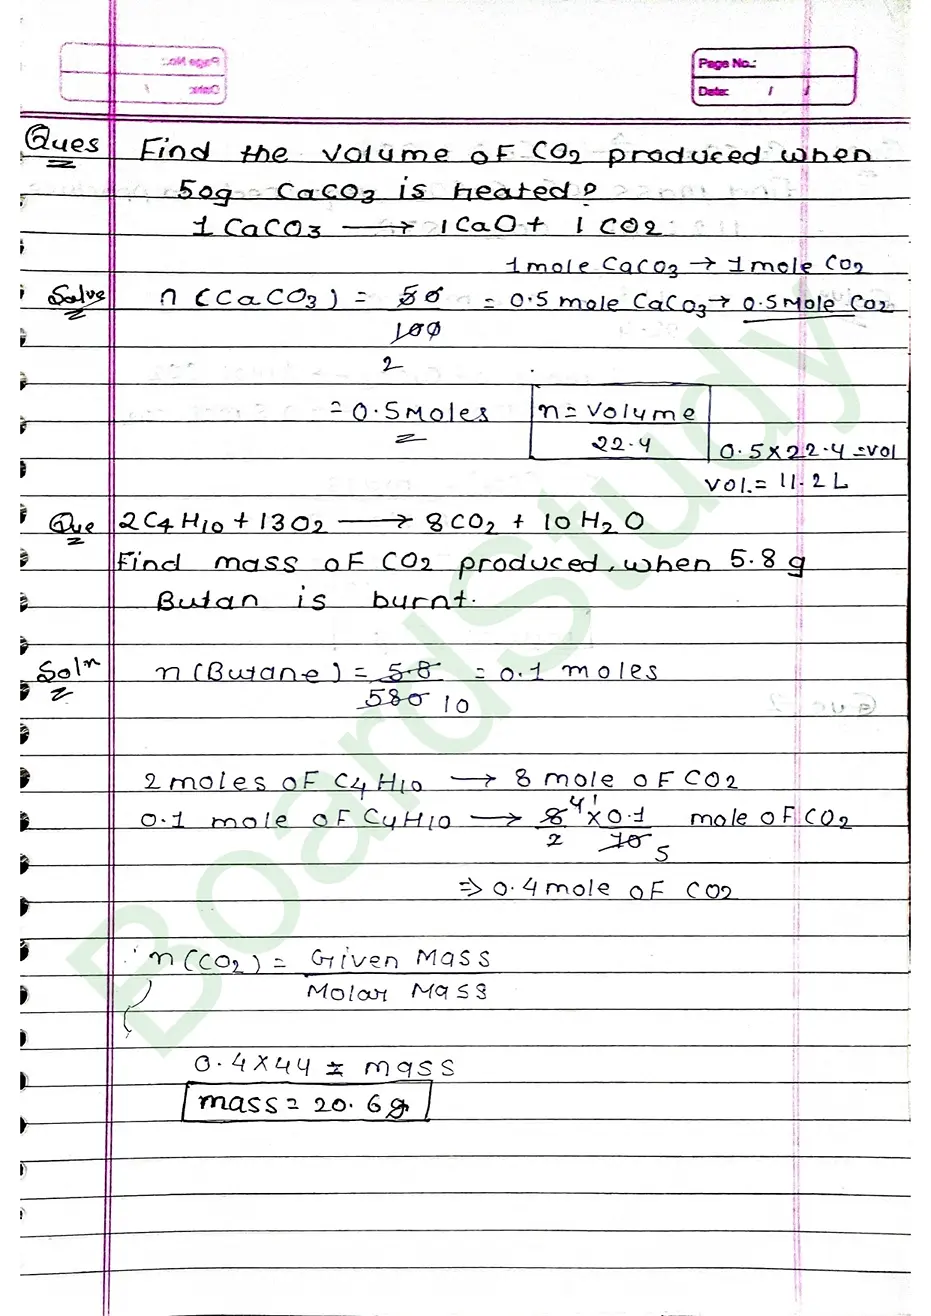 Page No.:
Date: / /
Ques Find the volume of CO2 produced when
50g CaCO3 is heated?
1 CaCO3 → 1CaO + 1 CO2
1 mole CaCO3 → 1 mole CO2
Solve n (CaCO3) = 50/100 = 0.5 mole CaCO3 → 0.5 Mole CO2
2
= 0.5 Moles n = Volume/22.4
0.5 × 22.4 = vol
Vol. = 11.2 L
Que 2C4H10 + 13O2 → 8CO2 + 10H2O
Find mass of CO2 produced, when 5.8 g
Butan is burnt.
Soln n (Butane) = 5.8/580 10 = 0.1 moles
2 moles of C4H10 → 8 mole of CO2
0.1 mole of C4H10 → 8 4/2 × 0.1 1/10 5 mole of CO2
⇒ 0.4 mole of CO2
n (CO2) = Given Mass
Molar Mass
0.4 × 44 = mass
mass = 20.6 g
BoardStudy